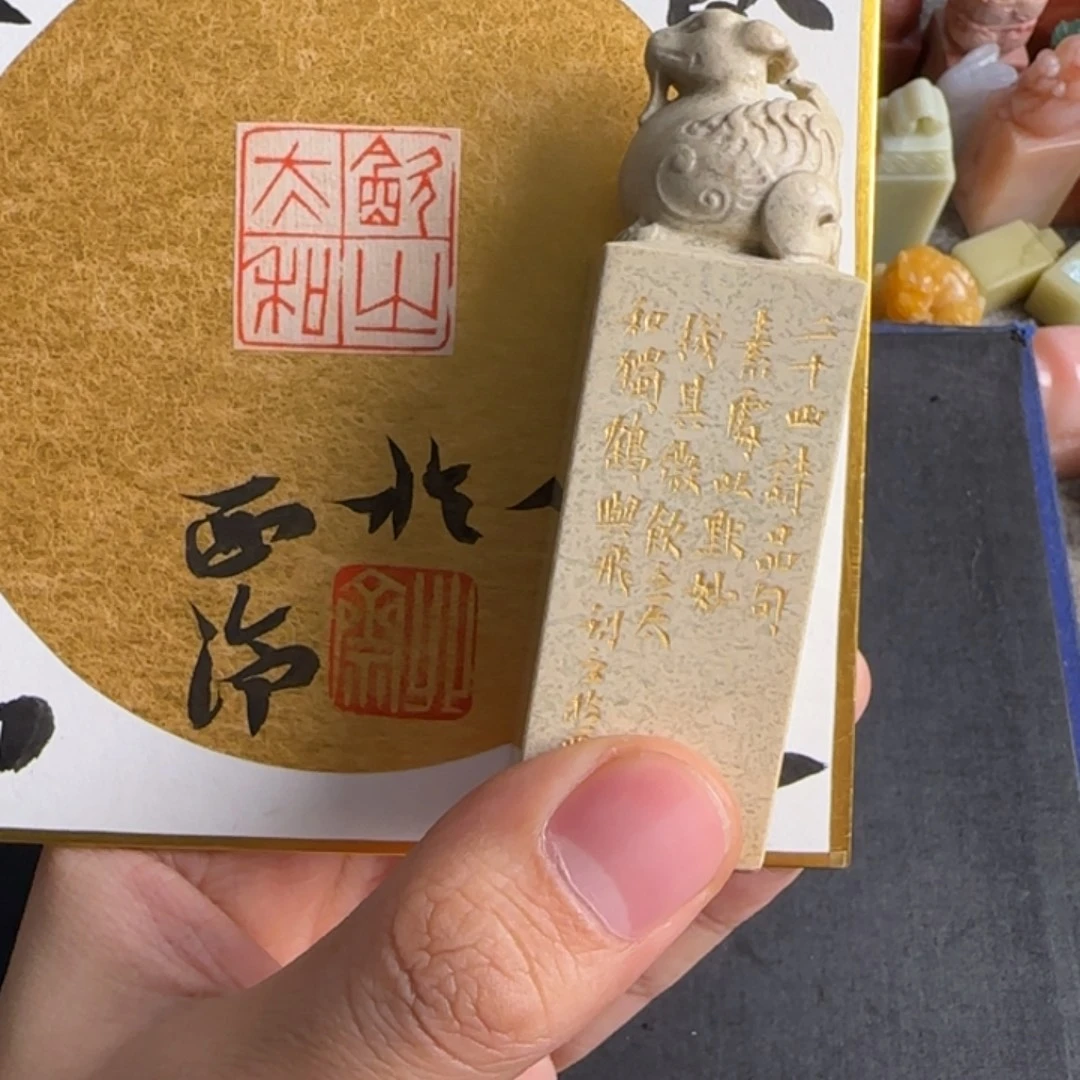 飲之
太和
二十四詩品句
素處以默妙
機其微飲之太
和獨鶴與飛刻之於
於
西泠